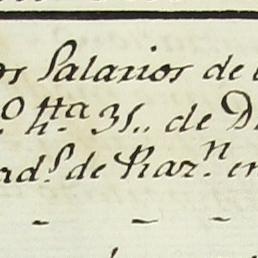 os Salarios de l
o hta 31,, de D
ad.s de Razn. en